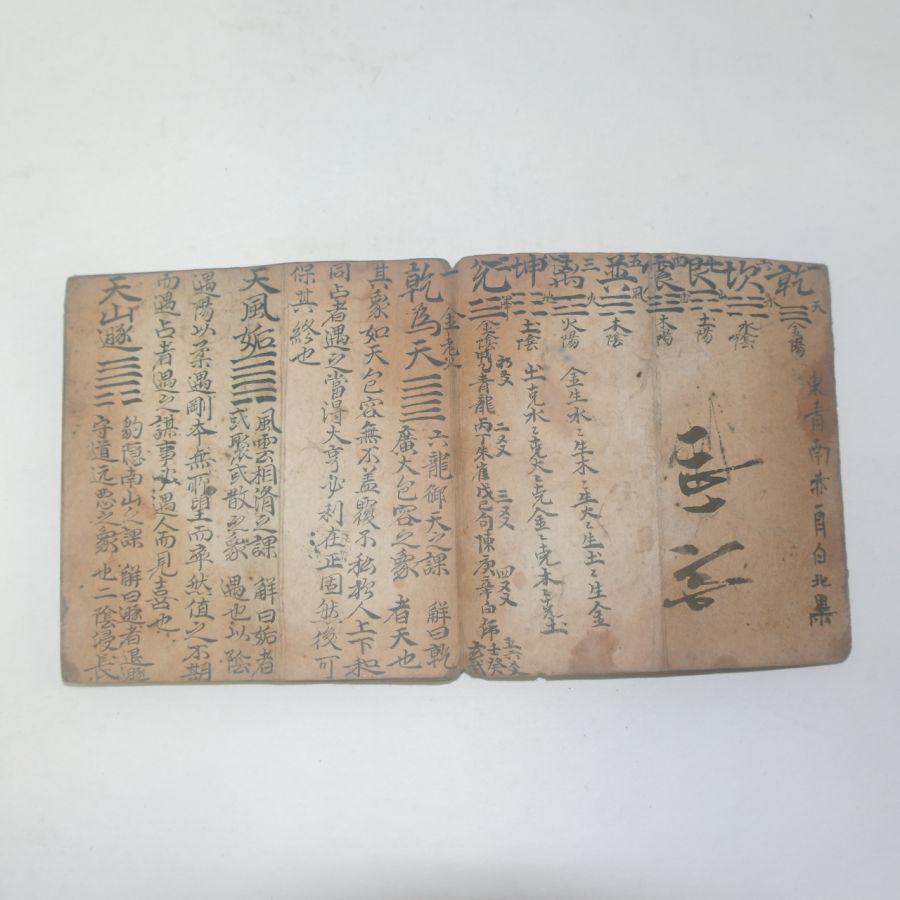 東青南赤酉白北黑
乾 天 金陽
坎 六 水 水陰
艮 七 山 土陽
震 四 木陽
巽 五 風 木陰
离 三 火 火陽
坤 地 土陰
兌 二 澤 金陰
金生水〻生木〻生火〻生土〻生金
土克水〻克火〻克金〻克木〻克土
初爻 二爻 三爻 四爻 五六爻
青龍 丙丁朱雀 戊己句陳 庚辛白虎 壬癸玄武
乾為天 六龍御天之課 觧曰乾
廣大包容之象 者天也
其象如天包容無不盖覆不私於人上下和
同占者遇之當得大亨必利在正固然後可
保其終也
天風姤 風雲相濟之課 觧曰姤者
或聚或散之象 遇也以陰
遇陽以柔遇剛本無所望而卒然值之不期
而遇占者遇之謀事必遇人而見喜也
天山遯 豹隱南山之課 觧曰遯者退遯
守道远恶之象 也二陰浸長